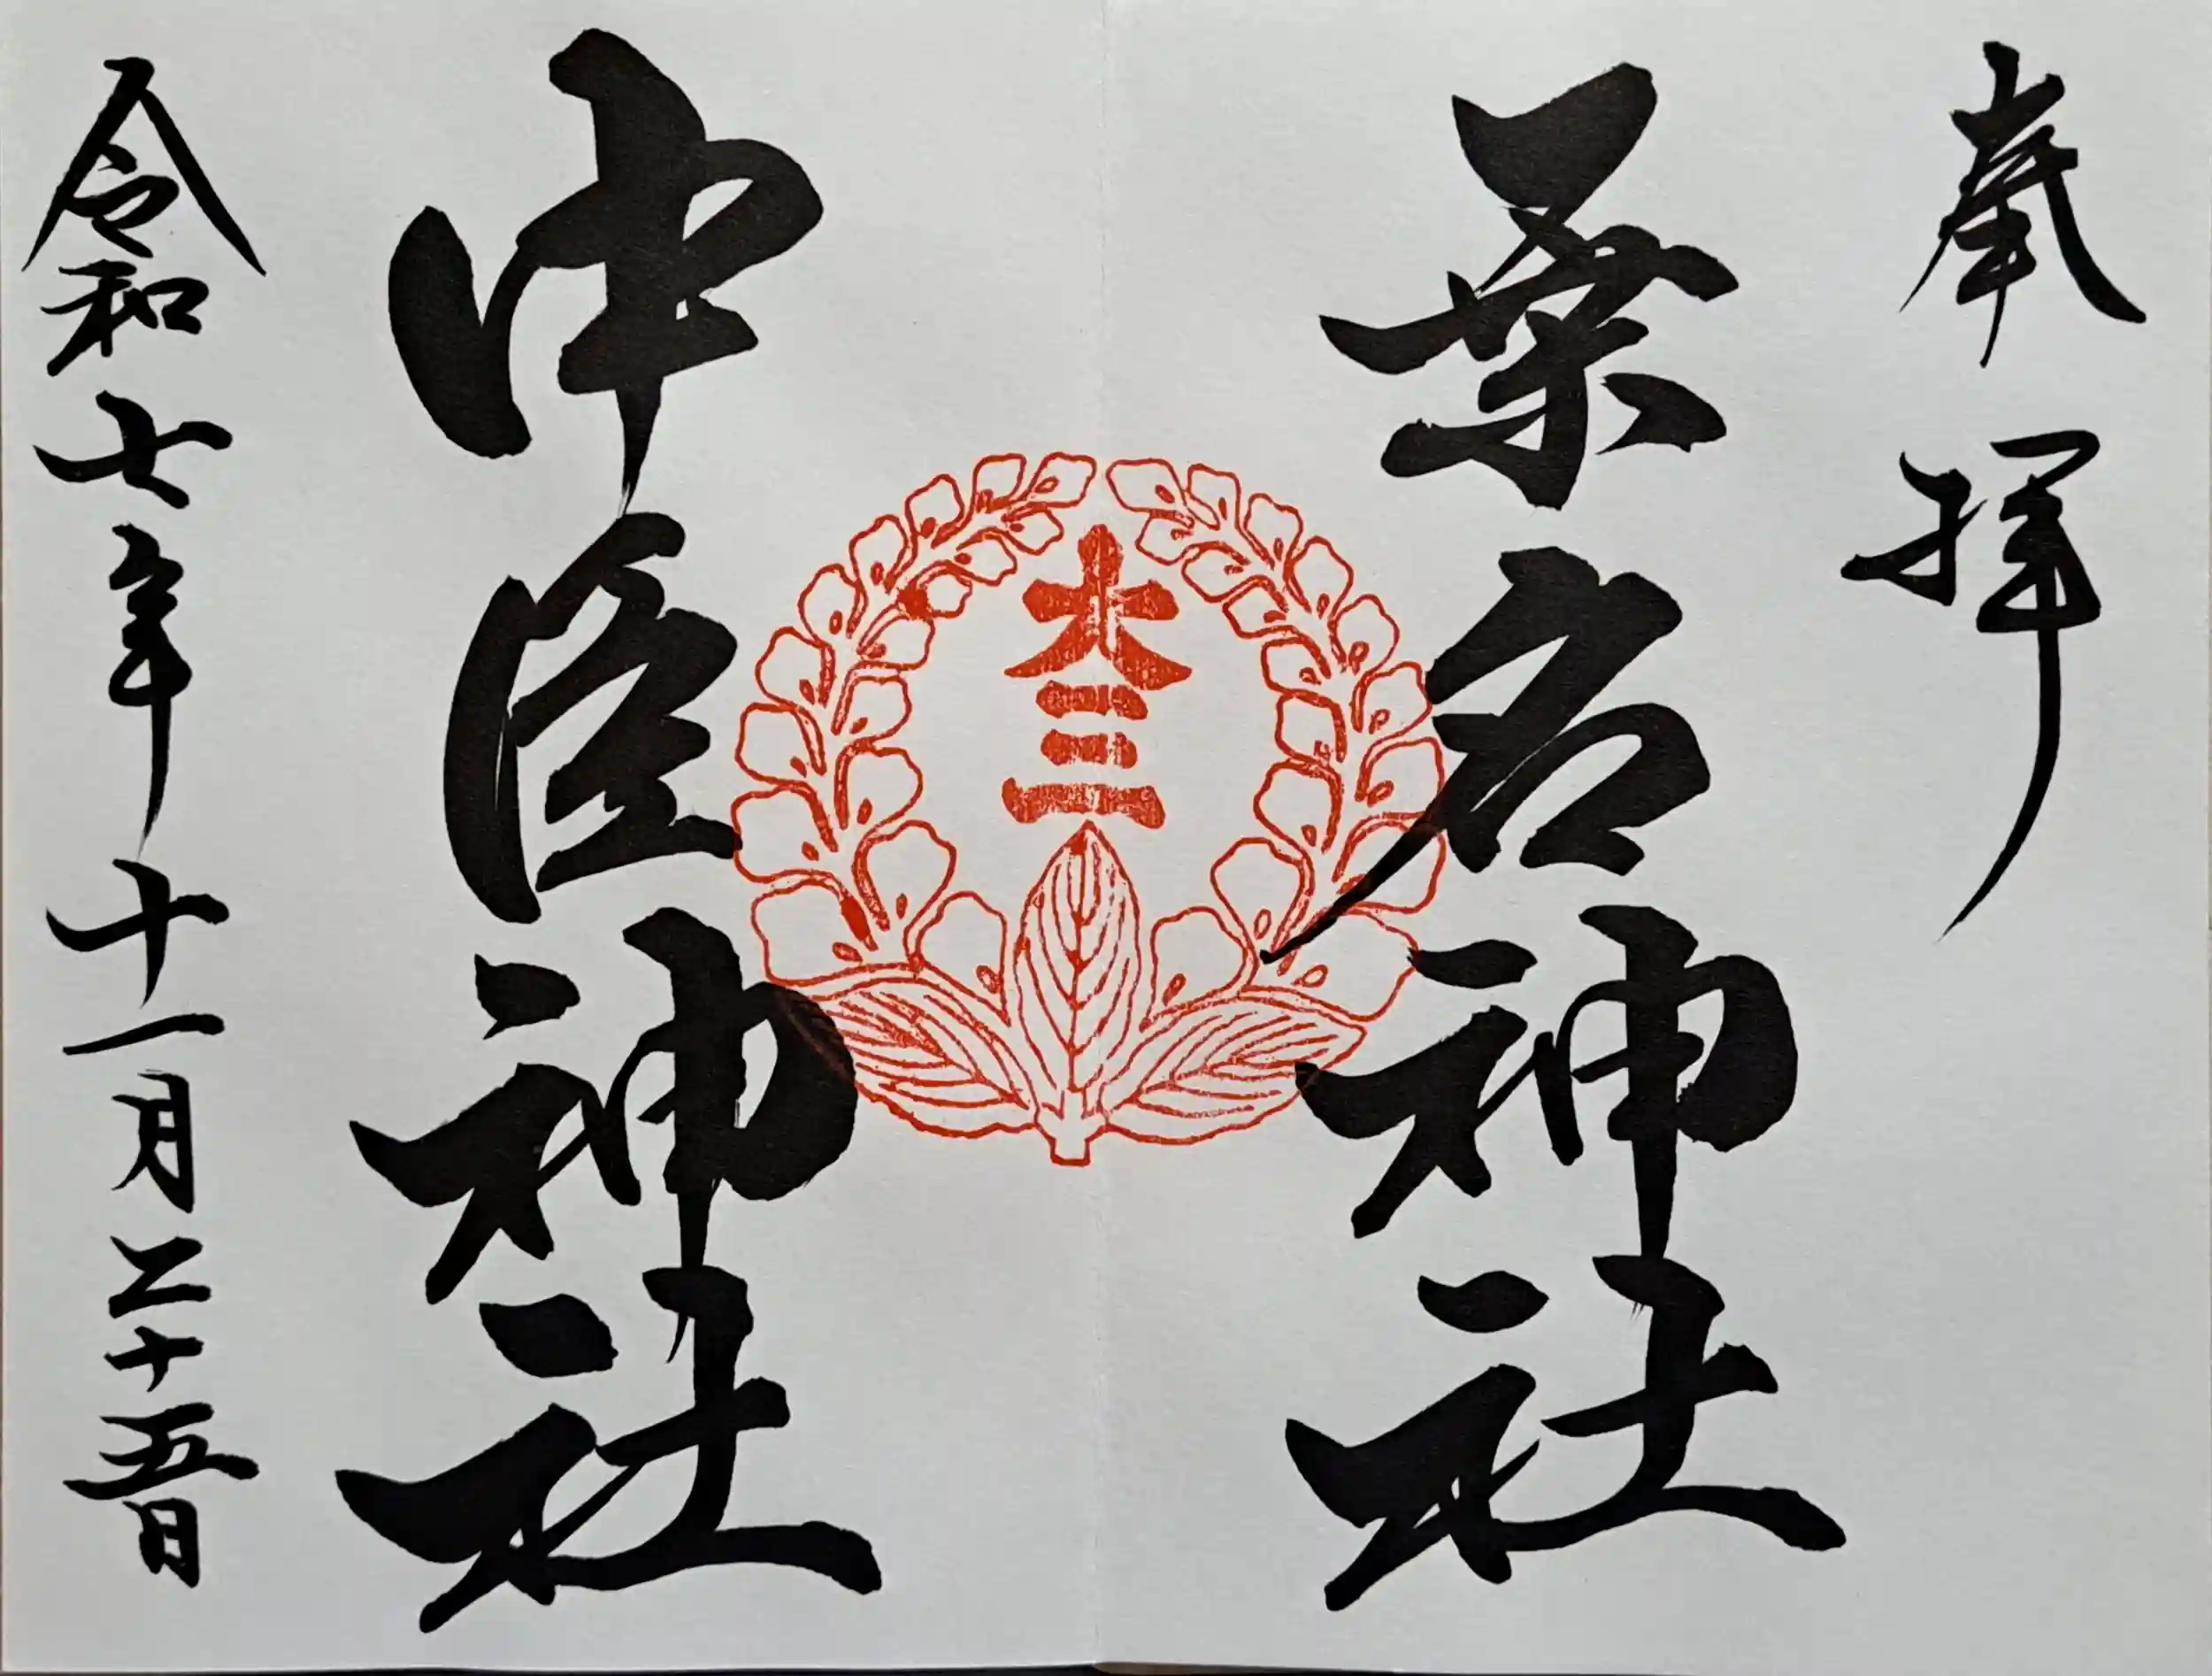 奉拝
桑名神社
大
三
三
中臣神社
令和七年十一月二十五日